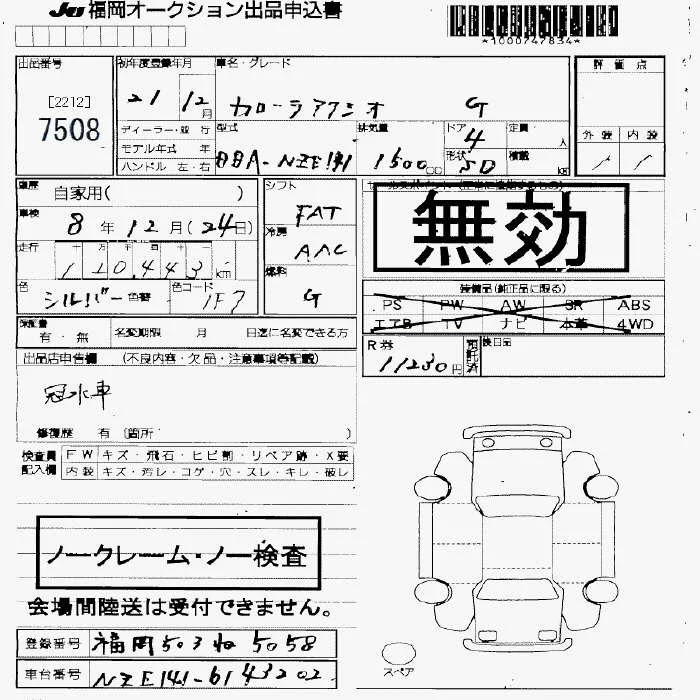 JU 福岡オークション出品申込書
*1000747834*
出品番号
[2212]
7508
初年度登録年月
21 12月
車名・グレード
カローラアクシオ G
評価点
外装 内装
ディーラー・並行
モデル年式 年
ハンドル 左・右
型式
DBA-NZE141
排気量
1500cc
ドア
4
形状
SD
定員 人
積載 kg
車歴 自家用( )
車検 8年12月(24日)
走行 十万千百十一
110,443km
色 シルバー 色替
色コード 1F7
シフト FAT
冷房 AAC
燃料 G
セールスポイント
無効
装備品(純正品に限る)
PS PW AW SR ABS
エアB TV ナビ 本革 4WD
保証書 有・無
名変期限 月 日迄に名変できる方
R券 11230円 預託済
後日品
出品店申告欄 (不良内容・欠品・注意事項等記載)
冠水車
修復歴 有 (箇所 )
検査員記入欄
FW キズ・飛石・ヒビ割・リペア跡・X要
内装 キズ・汚レ・コゲ・穴・スレ・キレ・破レ
ノークレーム・ノー検査
会場間陸送は受付できません。
登録番号 福岡503ね5058
車台番号 NZE141-6143202
スペア